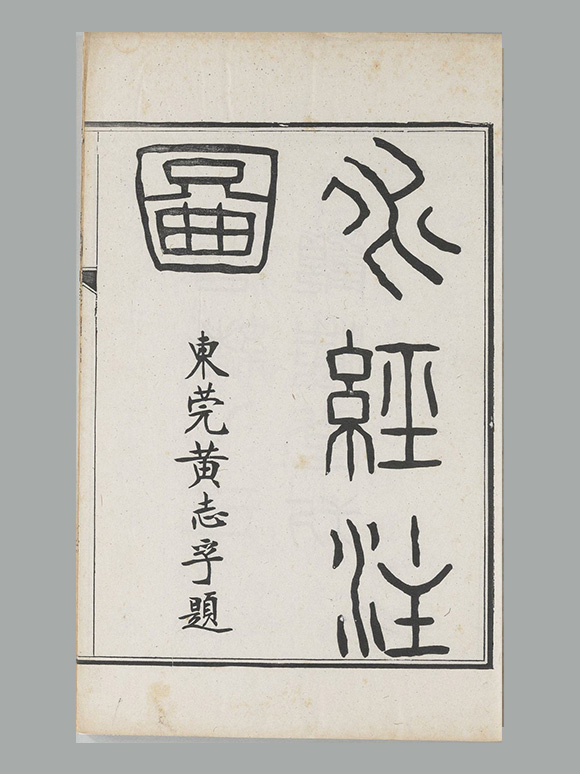 水經注
圖
東莞黄志孚題